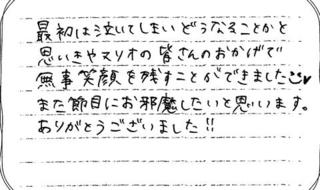 最初は泣いてしまいどうなることかと
思いきやマリオの皆さんのおかげで
無事笑顔を残すことができました
また節目にお邪魔したいと思います。
ありがとうございました!!